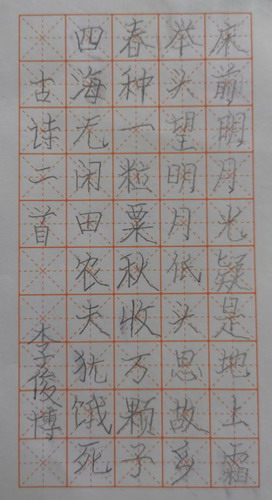 床前明月光疑是地上霜
举头望明月低头思故乡
春种一粒粟秋收万颗子
四海无闲田农夫犹饿死
古诗二首
李俊博